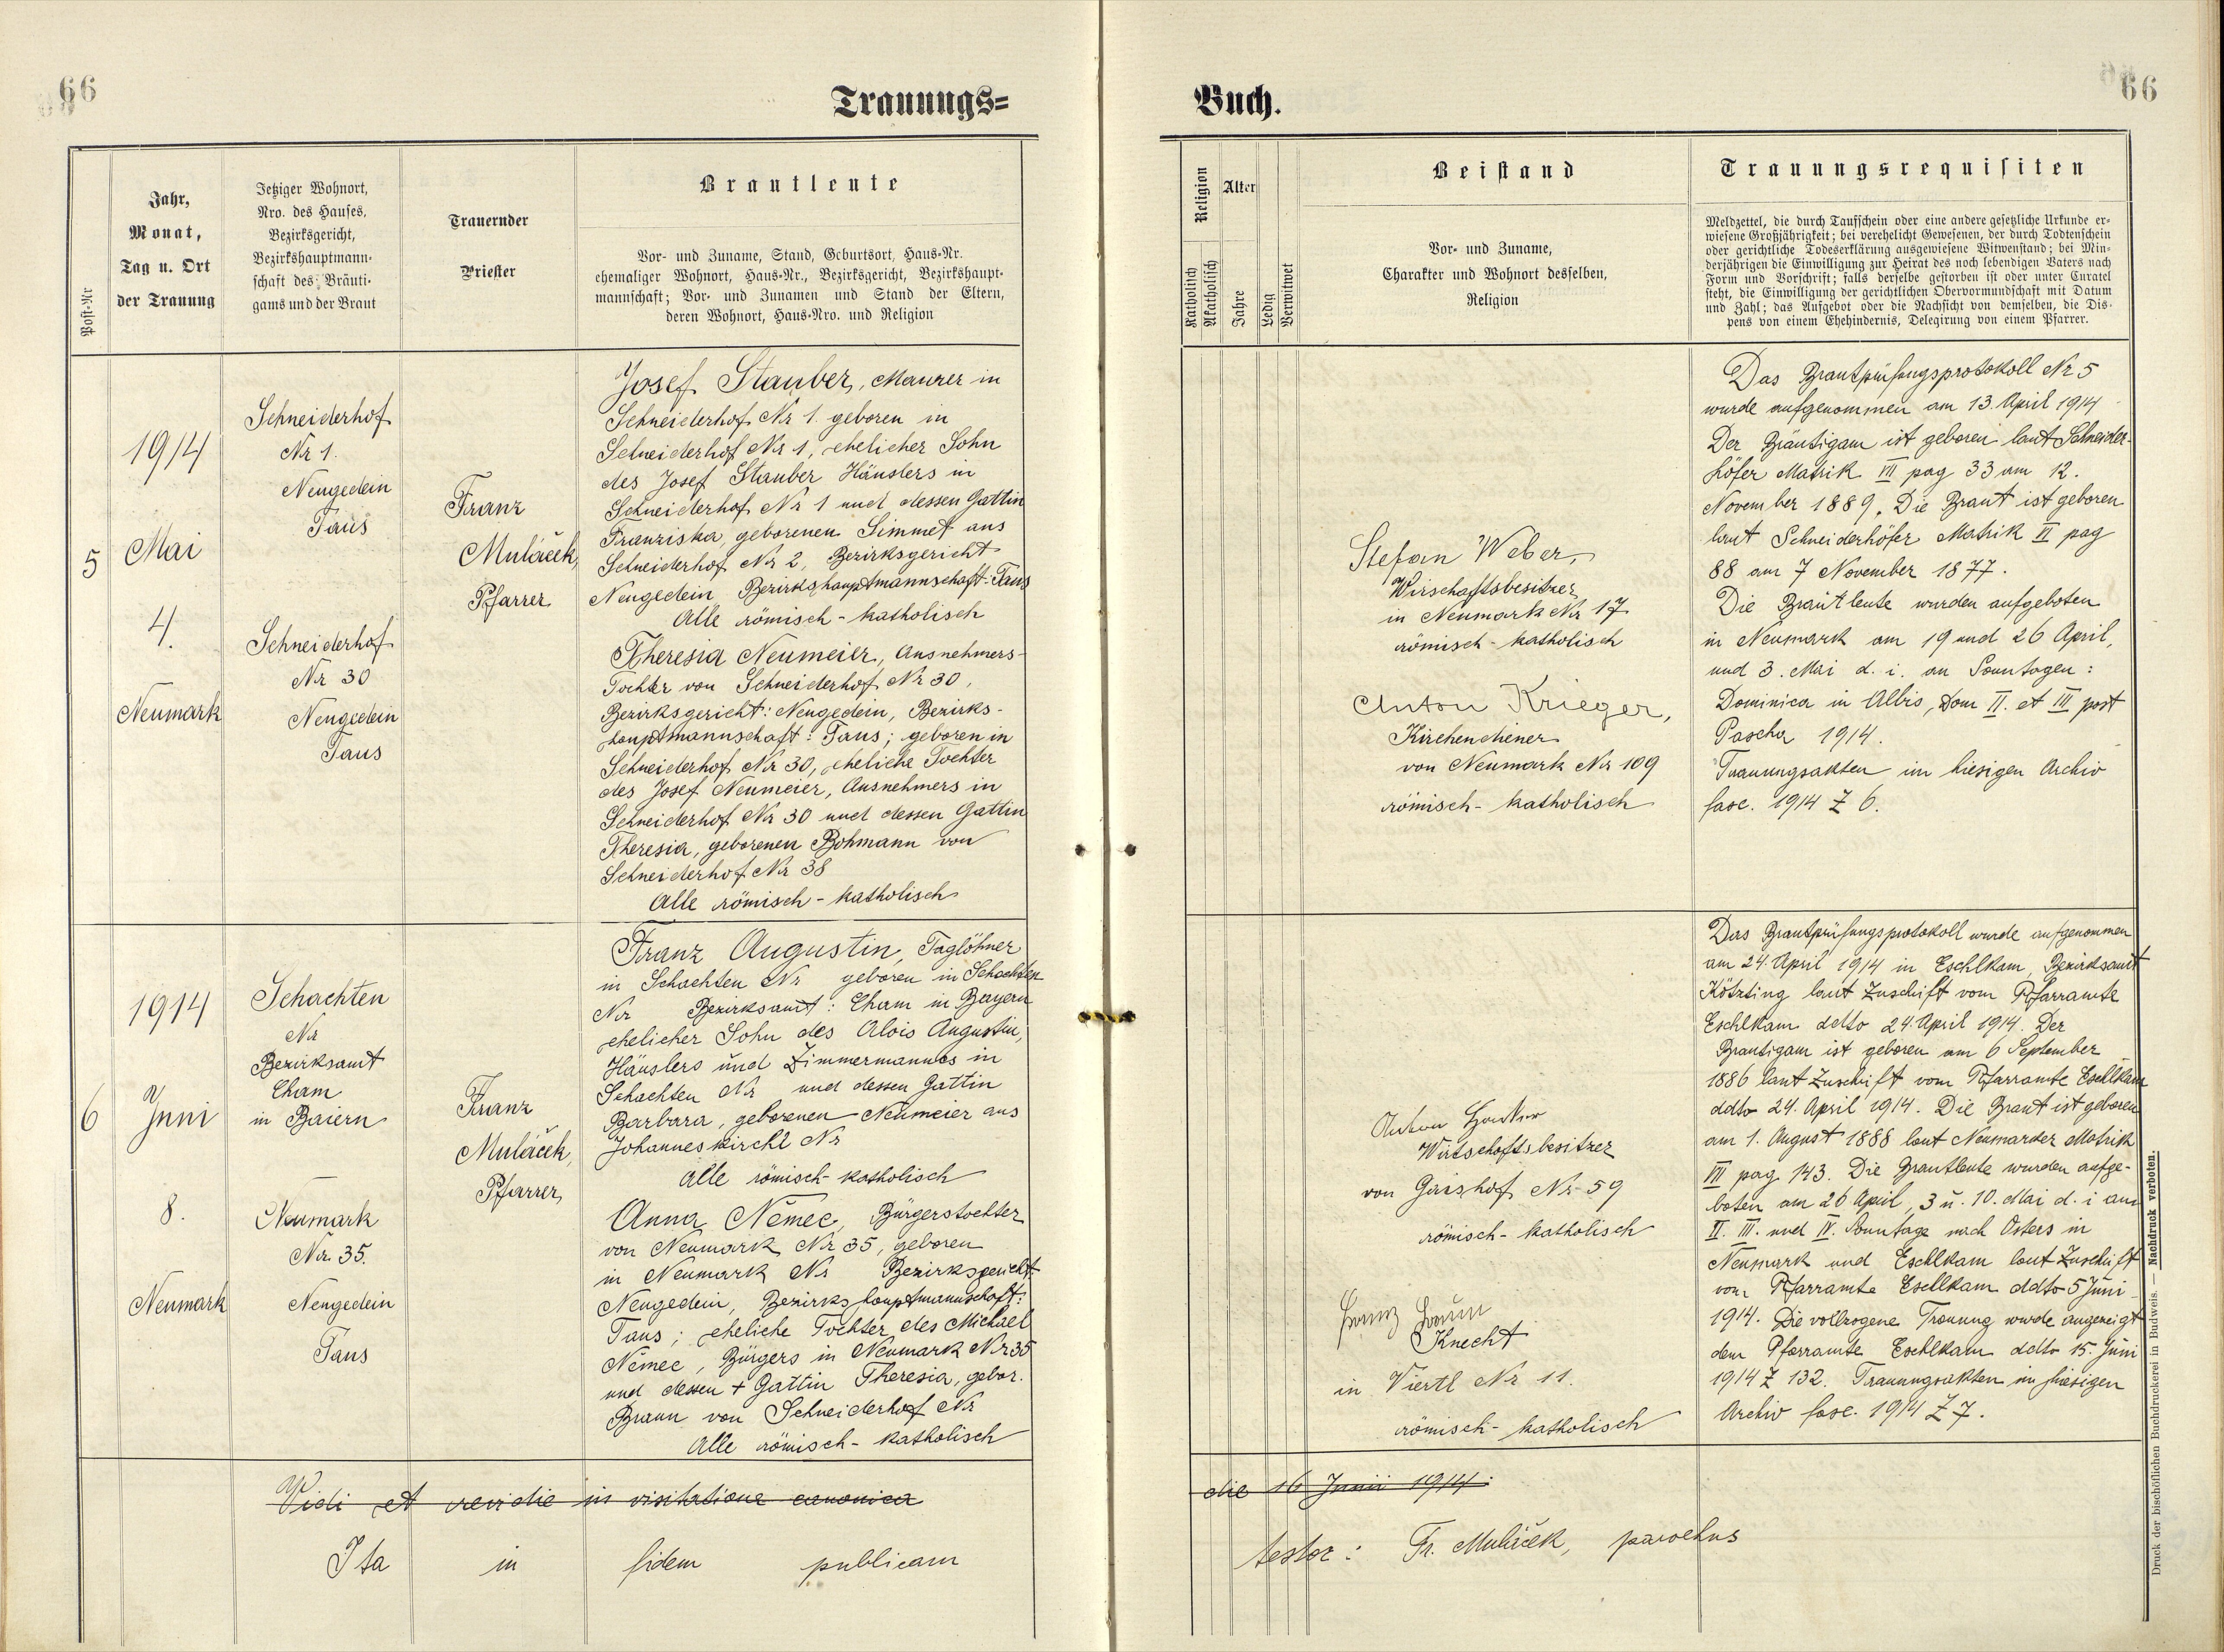 66
Trauungs=
Post-Nr
Jahr,
Monat,
Tag u. Ort
der Trauung
Jetziger Wohnort,
Nro. des Hauses,
Bezirksgericht,
Bezirkshauptmann-
schaft des Bräuti-
gams und der Braut
Trauernder
Priester
Brautleute
Vor- und Zuname, Stand, Geburtsort, Haus-Nr.
ehemaliger Wohnort, Haus-Nr., Bezirksgericht, Bezirkshaupt-
mannschaft; Vor- und Zunamen und Stand der Eltern,
deren Wohnort, Haus-Nro. und Religion
5
1914
Mai
4.
Neumark
Schneiderhof
Nr 1.
Neugedein
Taus
Schneiderhof
Nr 30
Neugedein
Taus
Franz
Muláček,
Pfarrer
Josef Stauber, Maurer in
Schneiderhof Nr 1. geboren in
Schneiderhof Nr 1, ehelicher Sohn
des Josef Stauber Häuslers in
Schneiderhof Nr 1 und dessen Gattin
Franziska, geborenen Simmet aus
Schneiderhof Nr 2, Bezirksgericht
Neugedein, Bezirkshauptmannschaft: Taus
Alle römisch-katholisch
Theresia Neumeier, Ausnehmers-
Tochter von Schneiderhof Nr 30,
Bezirksgericht: Neugedein, Bezirks-
hauptmannschaft: Taus; geboren in
Schneiderhof Nr 30, eheliche Tochter
des Josef Neumeier, Ausnehmers in
Schneiderhof Nr 30 und dessen Gattin
Theresia, geborenen Bohmann von
Schneiderhof Nr 38
Alle römisch-katholisch
6
1914
Juni
8.
Neumark
Schachten
Nr
Bezirksamt
Cham
in Baiern
Neumark
Nr. 35.
Neugedein
Taus
Franz
Muláček,
Pfarrer,
Franz Augustin, Taglöhner
in Schachten Nr geboren in Schachten
Nr Bezirksamt: Cham in Bayern
ehelicher Sohn des Alois Augustin,
Häuslers und Zimmermannes in
Schachten Nr und dessen Gattin
Barbara, geborenen Neumeier aus
Johanneskirchl Nr
Alle römisch-katholisch
Anna Němec, Bürgerstochter
von Neumark Nr 35, geboren
in Neumark Nr Bezirksgericht
Neugedein, Bezirkshauptmannschaft:
Taus; eheliche Tochter des Michael
Němec, Bürgers in Neumark Nr 35
und dessen + Gattin Theresia, gebor.
Braun von Schneiderhof Nr
Alle römisch-katholisch
Vidi et revidie in visitatione canonica
Ita in fidem publicam
66
Buch.
Religion
Katholisch
Akatholisch
Alter
Jahre
Ledig
Verwitwet
Beistand
Vor- und Zuname,
Charakter und Wohnort desselben,
Religion
Trauungsrequisiten
Meldzettel, die durch Taufschein oder eine andere gesetzliche Urkunde er-
wiesene Großjährigkeit; bei verehelicht Gewesenen, der durch Todtenschein
oder gerichtliche Todeserklärung ausgewiesene Witwenstand; bei Min-
derjährigen die Einwilligung zur Heirat des noch lebendigen Vaters nach
Form und Vorschrift; falls derselbe gestorben ist oder unter Curatel
steht, die Einwilligung der gerichtlichen Obervormundschaft mit Datum
und Zahl; das Aufgebot oder die Nachsicht von demselben, die Dis-
pens von einem Ehehindernis, Delegirung von einem Pfarrer.
Stefan Weber,
Wirschaftsbesitzer
in Neumark Nr 17
römisch-katholisch
Anton Krieger,
Kirchendiener
von Neumark Nr 109
römisch-katholisch
Das Brautprüfungsprotokoll Nr 5
wurde aufgenommen am 13. April 1914
Der Bräutigam ist geboren laut Schneider-
höfer Matrik VII pag 33 am 12.
November 1889. Die Braut ist geboren
laut Schneiderhöfer Matrik VI pag
88 am 7 November 1877.
Die Brautleute wurden aufgeboten
in Neumark am 19 und 26 April,
und 3. Mai d. i. an Sonntagen:
Dominica in Albis, Dom II. et III post
Pascha 1914.
Trauungsakten im hiesigen Archiv
fasc. 1914 Z 6.
Anton
Wirtschaftsbesitzer
von Gaishof Nr 59
römisch-katholisch
Franz
Knecht
in Viertl Nr 11.
römisch-katholisch
Das Brautprüfungsprotokoll wurde aufgenommen
am 24. April 1914 in Eschlkam, Bezirksamt
Kötzting laut Zuschift vom Pfarramte
Eschlkam ddto 24. April 1914. Der
Brautigam ist geboren am 6 September
1886 laut Zuschrift vom Pfarramte Eschlkam
ddto 24. April 1914. Die Braut ist geboren
am 1. August 1888 laut Neumarker Matrik
VII pag 143. Die Brautleute wurden aufge-
boten am 26 April, 3 u. 10. Mai d. i am
II. III. und IV. Sonntage nach Osters in
Neumark und Eschlkam laut Zuschift
vom Pfarramte Eschlkam ddto 5 Juni
1914. Die vollzogene Trauung wurde angezeigt
dem Pfarramte Eschlkam ddto 15. Juni
1914 Z 132. Trauungsakten im hiesigen
Archiv fasc. 1914 Z 7.
die 16 Junii 1914.
testor: Fr. Muláček, parochus
Druck der bischöflichen Buchdruckerei in Budweis. — Nachdruck verboten.